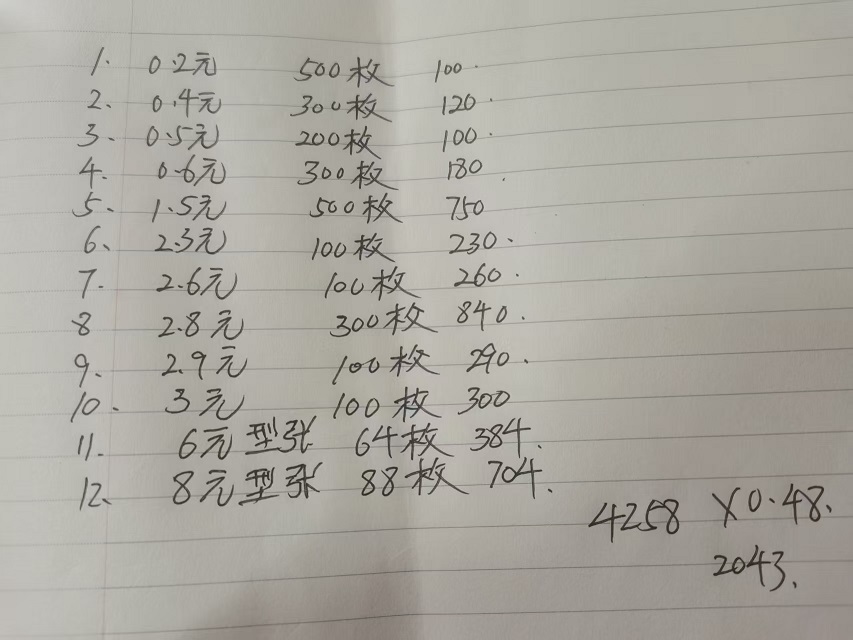 1. 0.2元 500枚 100.
2. 0.4元 300枚 120.
3. 0.5元 200枚 100.
4. 0.6元 300枚 180.
5. 1.5元 500枚 750
6、 2.3元 100枚 230.
7. 2.6元 100枚 260.
8 2.8元 300枚 840.
9. 2.9元 100枚 290.
10. 3元 100枚 300
11. 6元型张 64枚 384.
12. 8元型张 88枚 704.
4258 X0.48.
2043.